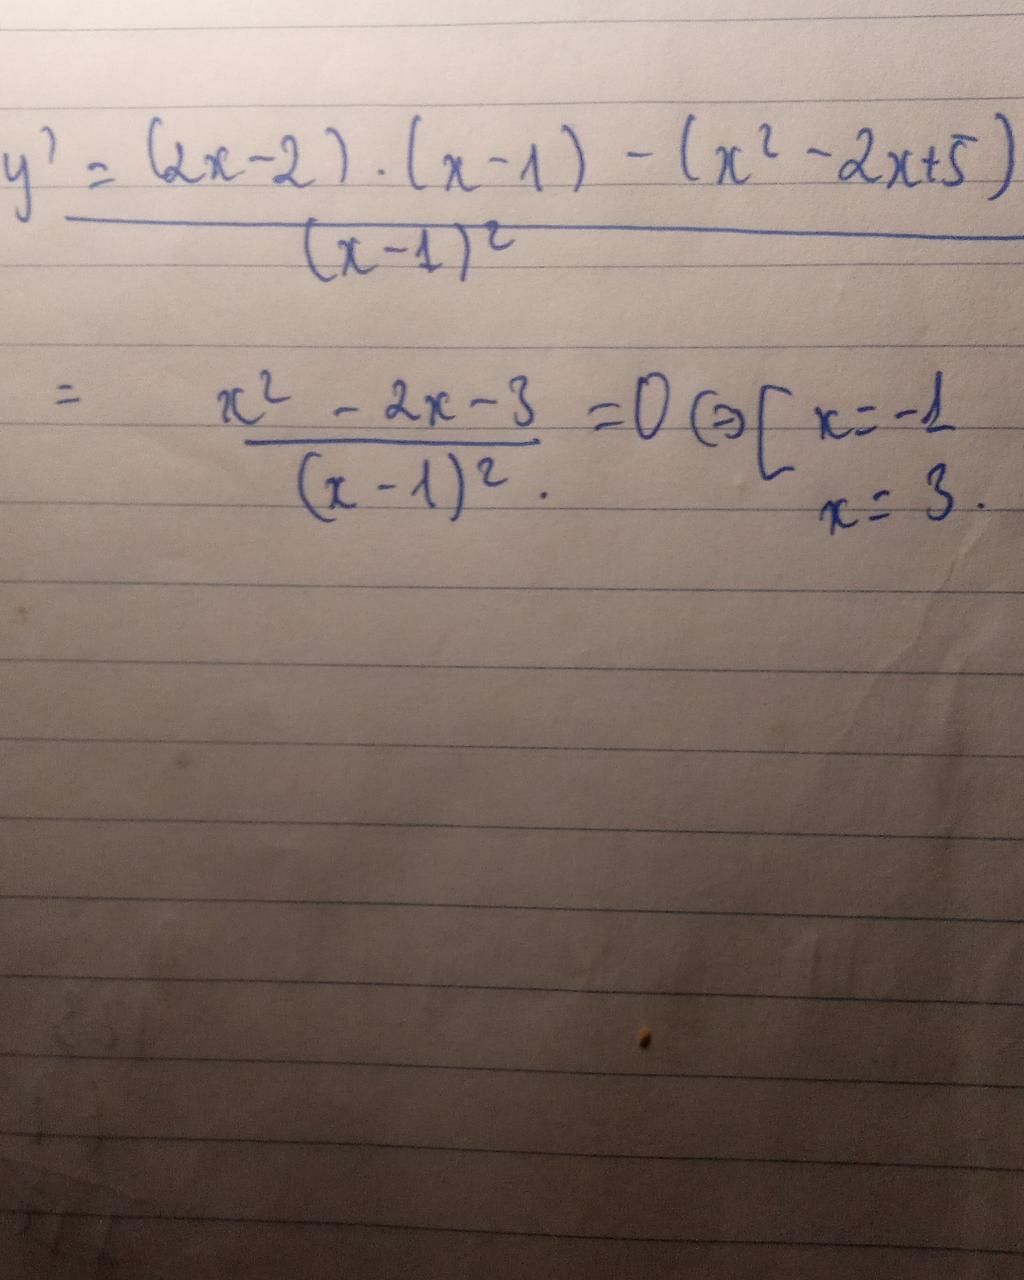 y' = (2x-2).(x-1) - (x² -2x+5)
(x-1)²
= x² - 2x - 3 =0 ⇔ [ x = -1
(x-1)². x = 3.